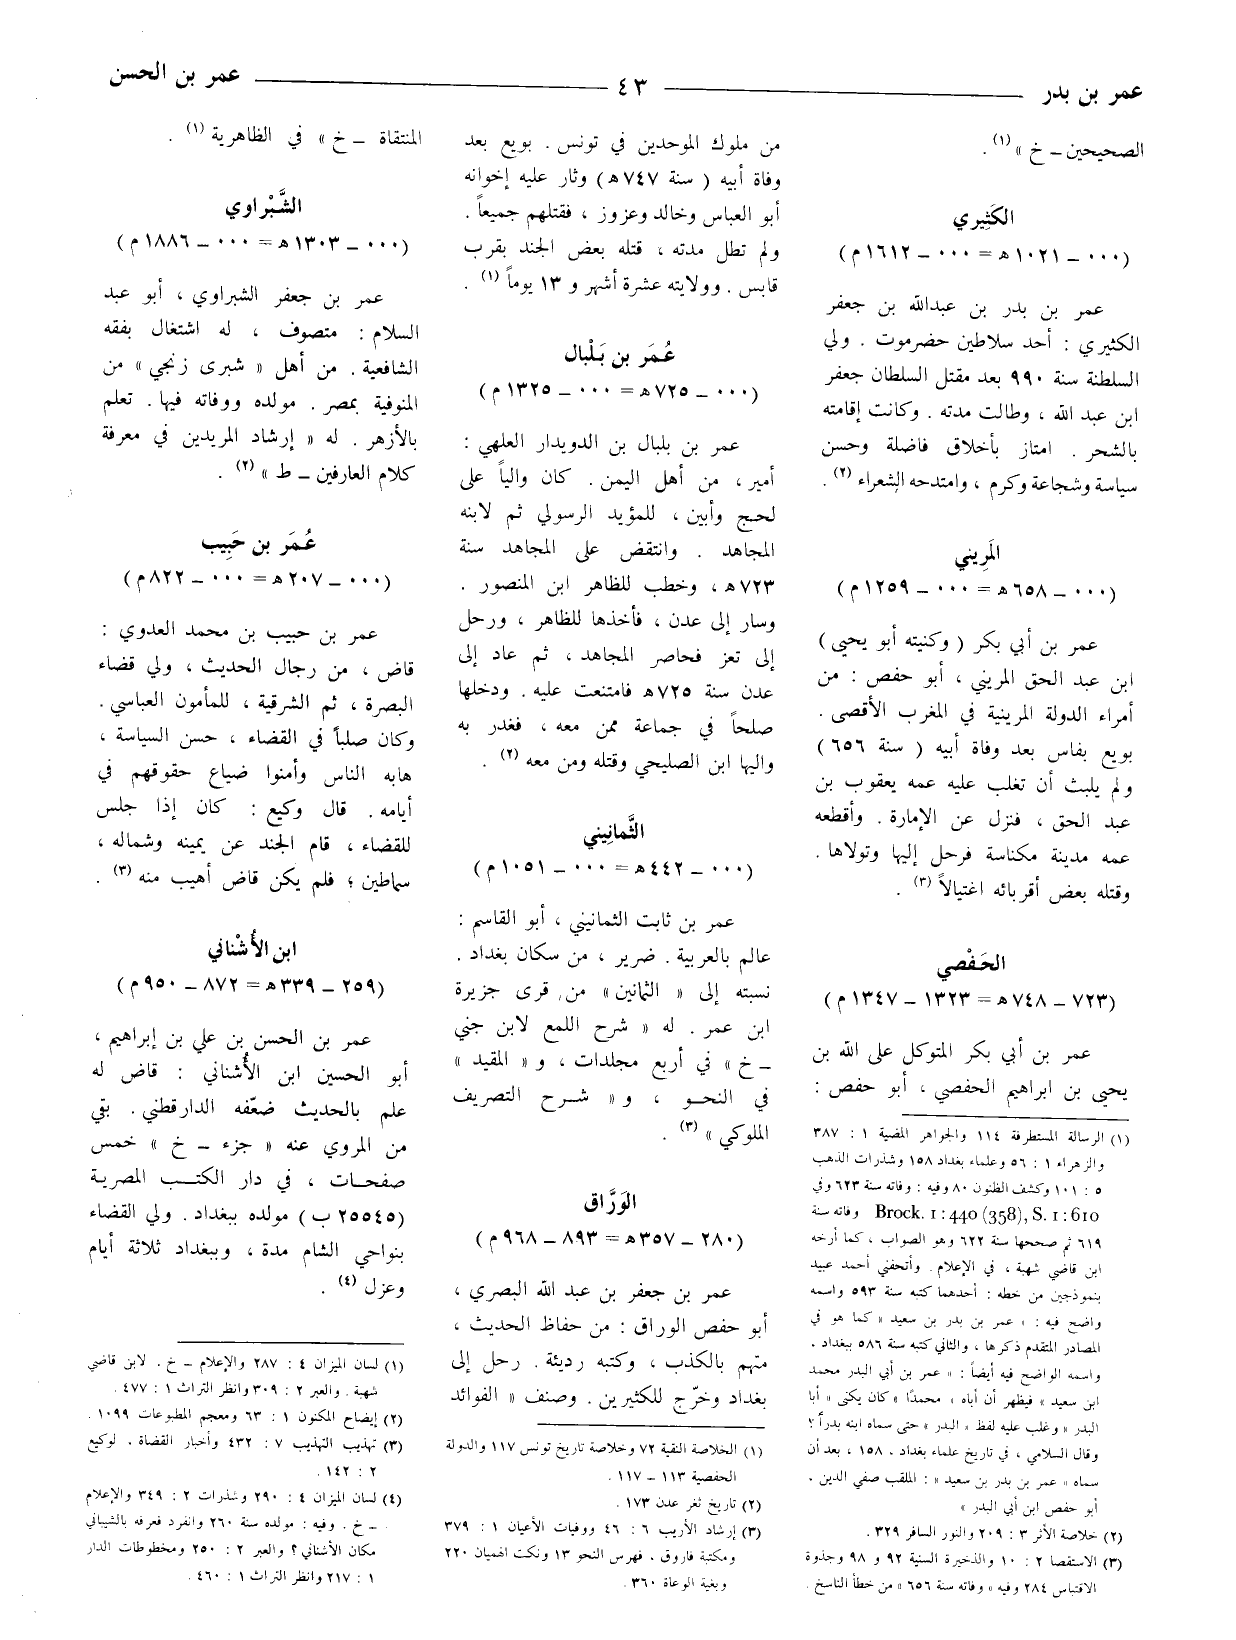 عمر بن بدر ــــ ٤٣ ــــ عمر بن الحسن
الصحيحين ـ خ » (١) .
الكَثِيري
( ٠٠٠ ـ ١٠٢١ ه = ٠٠٠ ـ ١٦١٢ م )
عمر بن بدر بن عبدالله بن جعفر
الكثيري : أحد سلاطين حضرموت . ولي
السلطنة سنة ٩٩٠ بعد مقتل السلطان جعفر
ابن عبد الله ، وطالت مدته . وكانت إقامته
بالشحر . امتاز بأخلاق فاضلة وحسن
سياسة وشجاعة وكرم ، وامتدحه الشعراء (٢) .
المَرِيني
( ٠٠٠ ـ ٦٥٨ ه = ٠٠٠ ـ ١٢٥٩ م )
عمر بن أبي بكر ( وكنيته أبو يحيى )
ابن عبد الحق المريني ، أبو حفص : من
أمراء الدولة المرينية في المغرب الأقصى .
بويع بفاس بعد وفاة أبيه ( سنة ٦٥٦ )
ولم يلبث أن تغلب عليه عمه يعقوب بن
عبد الحق ، فنزل عن الإمارة . وأقطعه
عمه مدينة مكناسة فرحل إليها وتولاها .
وقتله بعض أقربائه اغتيالاً (٣) .
الحَفْصي
( ٧٢٣ ـ ٧٤٨ ه = ١٣٢٣ ـ ١٣٤٧ م )
عمر بن أبي بكر المتوكل على الله بن
يحيى بن ابراهيم الحفصي ، أبو حفص :
(١) الرسالة المستطرفة ١١٤ والجواهر المضية ١ : ٣٨٧
والزهراء ١ : ٥٦ وعلماء بغداد ١٥٨ وشذرات الذهب
٥ : ١٠١ وكشف الظنون ٨٠ وفيه : وفاته سنة ٦٢٣ وفي
Brock. 1 : 440 (358), S. 1 : 610 وفاته سنة
٦١٩ ثم صححها سنة ٦٢٢ وهو الصواب ، كما أرخه
ابن قاضي شهبة ، في الإعلام . وأتحفني أحمد عبيد
بنموذجين من خطه : أحدهما كتبه سنة ٥٩٣ واسمه
واضح فيه : « عمر بن بدر بن سعيد » كما هو في
المصادر المتقدم ذكرها ، والثاني كتبه سنة ٥٨٦ ببغداد .
واسمه الواضح فيه أيضاً : « عمر بن أبي البدر محمد
ابن سعيد » فيظهر أن أباه « محمدًا » كان يكنى « أبا
البدر » وغلب عليه لفظ « البدر » حتى سماه ابنه بدراً ؟
وقال السلامي ، في تاريخ علماء بغداد ، ١٥٨ ، بعد أن
سماه « عمر بن بدر بن سعيد » : الملقب صفي الدين .
أبو حفص ابن أبي البدر »
(٢) خلاصة الأثر ٣ : ٢٠٩ والنور السافر ٣٢٩ .
(٣) الاستقصا ٢ : ١٠ والذخيرة السنية ٩٢ و ٩٨ وجذوة
الاقتباس ٢٨٤ وفيه « وفاته سنة ٦٥٦ » من خطأ الناسخ .
من ملوك الموحدين في تونس . بويع بعد
وفاة أبيه ( سنة ٧٤٧ ه ) وثار عليه إخوانه
أبو العباس وخالد وعزوز ، فقتلهم جميعاً .
ولم تطل مدته ، قتله بعض الجند بقرب
قابس . وولايته عشرة أشهر و ١٣ يوماً (١) .
عُمَر بن بَلْبال
( ٠٠٠ ـ ٧٢٥ ه = ٠٠٠ ـ ١٣٢٥ م )
عمر بن بلبال بن الدويدار العلهي :
أمير ، من أهل اليمن . كان والياً على
لحج وأبين ، للمؤيد الرسولي ثم لابنه
المجاهد . وانتقض على المجاهد سنة
٧٢٣ ه ، وخطب للظاهر ابن المنصور .
وسار إلى عدن ، فأخذها للظاهر ، ورحل
إلى تعز فحاصر المجاهد ، ثم عاد إلى
عدن سنة ٧٢٥ ه فامتنعت عليه . ودخلها
صلحاً في جماعة ممن معه ، فغدر به
واليها ابن الصليحي وقتله ومن معه (٢) .
الثَّمانِيني
( ٠٠٠ ـ ٤٤٢ ه = ٠٠٠ ـ ١٠٥١ م )
عمر بن ثابت الثمانيني ، أبو القاسم :
عالم بالعربية . ضرير ، من سكان بغداد .
نسبته إلى « الثمانين » من قرى جزيرة
ابن عمر . له « شرح اللمع لابن جني
ـ خ » في أربع مجلدات ، و « المقيد »
في النحو ، و « شرح التصريف
الملوكي » (٣) .
الوَرَّاق
( ٢٨٠ ـ ٣٥٧ ه = ٨٩٣ ـ ٩٦٨ م )
عمر بن جعفر بن عبد الله البصري ،
أبو حفص الوراق : من حفاظ الحديث ،
متهم بالكذب ، وكتبه رديئة . رحل إلى
بغداد وخرّج للكثيرين . وصنف « الفوائد
(١) الخلاصة النقية ٧٢ وخلاصة تاريخ تونس ١١٧ والدولة
الحفصية ١١٣ ـ ١١٧ .
(٢) تاريخ ثغر عدن ١٧٣ .
(٣) إرشاد الأريب ٦ : ٤٦ ووفيات الأعيان ١ : ٣٧٩
ومكتبة فاروق ، فهرس النحو ١٣ ونكت الهميان ٢٢٠
وبغية الوعاة ٣٦٠ .
المنتقاة ـ خ » في الظاهرية (١) .
الشَّبْراوي
( ٠٠٠ ـ ١٣٠٣ ه = ٠٠٠ ـ ١٨٨٦ م )
عمر بن جعفر الشبراوي ، أبو عبد
السلام : متصوف ، له اشتغال بفقه
الشافعية . من أهل « شبرى زنجي » من
المنوفية بمصر . مولده ووفاته فيها . تعلم
بالأزهر . له « إرشاد المريدين في معرفة
كلام العارفين ـ ط » (٢) .
عُمَر بن حَبِيب
( ٠٠٠ ـ ٢٠٧ ه = ٠٠٠ ـ ٨٢٢ م )
عمر بن حبيب بن محمد العدوي :
قاض ، من رجال الحديث ، ولي قضاء
البصرة ، ثم الشرقية ، للمأمون العباسي .
وكان صلباً في القضاء ، حسن السياسة ،
هابه الناس وأمنوا ضياع حقوقهم في
أيامه . قال وكيع : كان إذا جلس
للقضاء ، قام الجند عن يمينه وشماله ،
سماطين ؛ فلم يكن قاض أهيب منه (٣) .
ابن الأُشْناني
( ٢٥٩ ـ ٣٣٩ ه = ٨٧٢ ـ ٩٥٠ م )
عمر بن الحسن بن علي بن إبراهيم ،
أبو الحسين ابن الأُشناني : قاض له
علم بالحديث ضعّفه الدارقطني . بقي
من المروي عنه « جزء ـ خ » خمس
صفحات ، في دار الكتب المصرية
(٢٥٥٤٥ ب) مولده ببغداد . ولي القضاء
بنواحي الشام مدة ، وببغداد ثلاثة أيام
وعزل (٤) .
(١) لسان الميزان ٤ : ٢٨٧ والإعلام ـ خ . لابن قاضي
شهبة . والعبر ٢ : ٣٠٩ وانظر التراث ١ : ٤٧٧ .
(٢) إيضاح المكنون ١ : ٦٣ ومعجم المطبوعات ١٠٩٩ .
(٣) تهذيب التهذيب ٧ : ٤٣٢ وأخبار القضاة . لوكيع
٢ : ١٤٢ .
(٤) لسان الميزان ٤ : ٢٩٠ وشذرات ٢ : ٣٤٩ والإعلام
ـ خ . وفيه : مولده سنة ٢٦٠ وانفرد فعرفه بالشيباني
مكان الأشناني ؟ والعبر ٢ : ٢٥٠ ومخطوطات الدار
١ : ٢١٧ وانظر التراث ١ : ٤٦٠ .